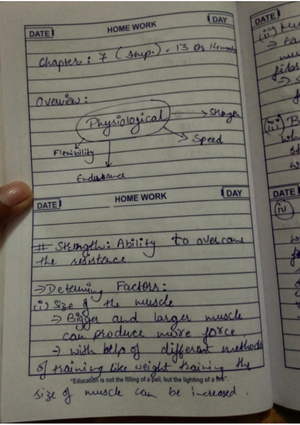 DATE HOME WORK DAY
Chapter: 7 (Imp.) - 13 or 14 marks
Overview:
Physiological
Strength
Speed
Flexibility
Endurance
DATE HOME WORK DAY
# Strength: Ability to overcome
the resistance
→ Determing Factors:
(i) Size of the muscle
→ Bigger and larger muscle
can produce more force
→ with help of different methods
of training like weight training the
"Education is not the filling of a pail, but the lighting of a fire".
size of muscle can be increased.
(ii)
(iii)
(iv)